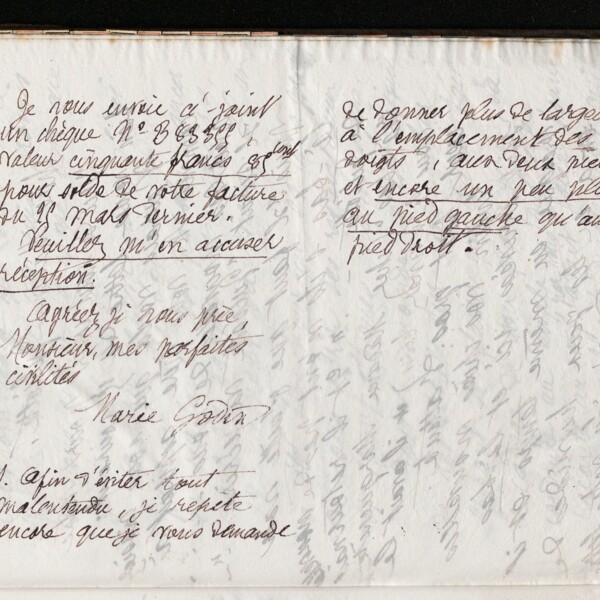 Je vous envoie ci-joint
un chèque N° B 83355,
valeur cinquante francs 85 cent
pour solde de votre facture
du 25 mars dernier.
Veuillez m'en accuser
réception.
Agréez je vous prie,
Monsieur, mes parfaites
civilités
Marie Godin
S. Afin d'éviter tout
malentendu, je répète
encore que je vous demande
de donner plus de large
à l'emplacement des
doigts, aux deux pie
et encore un peu plu
au pied gauche qu'au
pied droit.